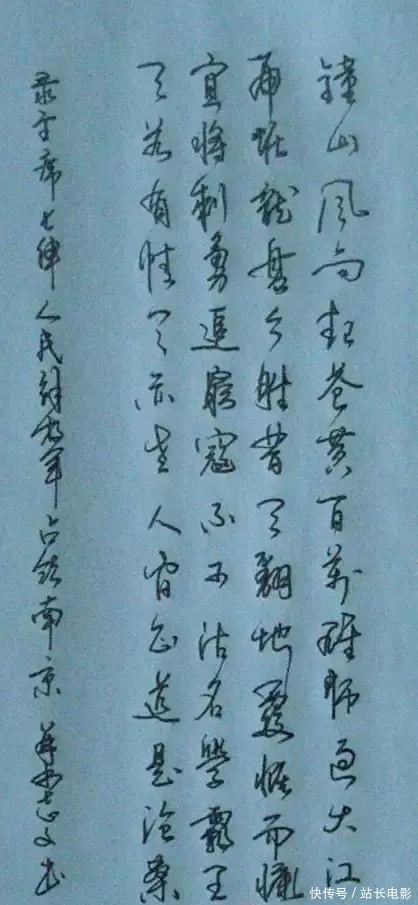 鐘山风雨起苍黄百萬雄师过大江
虎踞龍盘今胜昔天翻地覆慨而慷
宜将剩勇追窮寇不可沽名學霸王
天若有情天亦老人间正道是沧桑
录主席七律人民解放军占领南京 书
快传号 / 站长电影